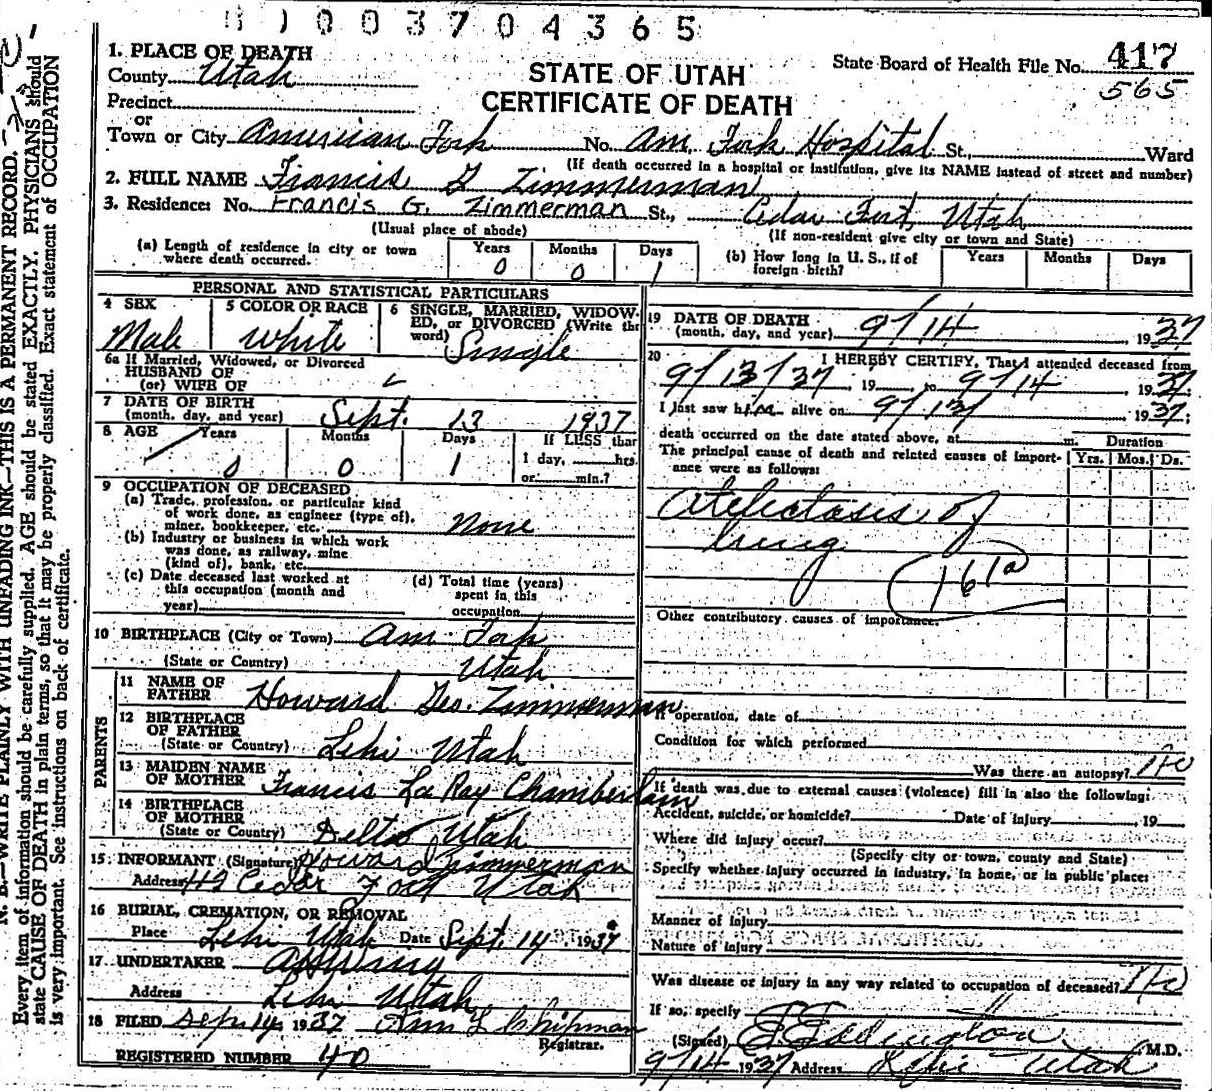 0 0 3 7 0 4 3 6 5
1. PLACE OF DEATH
County Utah
STATE OF UTAH
CERTIFICATE OF DEATH
State Board of Health File No. 417
565
Precinct
or
Town or City American Fork No. Am. Fork Hospital St., Ward
(If death occurred in a hospital or institution, give its NAME instead of street and number)
2. FULL NAME Francis G Zimmerman
3. Residence: No. Francis G. Zimmerman St., Cedar Fort, Utah
(Usual place of abode) (If non-resident give city or town and State)
(a) Length of residence in city or town where death occurred. Years 0 Months 0 Days 1
(b) How long in U. S., if of foreign birth? Years Months Days
PERSONAL AND STATISTICAL PARTICULARS
4 SEX Male
5 COLOR OR RACE White
6 SINGLE, MARRIED, WIDOWED, or DIVORCED (Write the word) Single
6a If Married, Widowed, or Divorced
HUSBAND OF
(or) WIFE OF
7 DATE OF BIRTH
(month, day, and year) Sept. 13 1937
8 AGE Years 0 Months 0 Days 1 If LESS than
1 day, hrs.
or min.?
9 OCCUPATION OF DECEASED
(a) Trade, profession, or particular kind
of work done, as engineer (type of),
miner, bookkeeper, etc. None
(b) Industry or business in which work
was done, as railway, mine
(kind of), bank, etc.
(c) Date deceased last worked at
this occupation (month and
year)
(d) Total time (years)
spent in this
occupation
10 BIRTHPLACE (City or Town) Am. Fork
(State or Country) Utah
PARENTS
11 NAME OF
FATHER Howard Geo. Zimmerman
12 BIRTHPLACE
OF FATHER
(State or Country) Lehi Utah
13 MAIDEN NAME
OF MOTHER Francis La Ray Chamberlain
14 BIRTHPLACE
OF MOTHER
(State or Country) Delta Utah
15 INFORMANT (Signature) Howard Zimmerman
Address Cedar Fort Utah
16 BURIAL, CREMATION, OR REMOVAL
Place Lehi Utah Date Sept. 14 1937
17 UNDERTAKER
Address Lehi Utah
18 FILED Sep. 14 1937 Chipman
Registrar.
REGISTERED NUMBER 40
19 DATE OF DEATH
(month, day, and year) 9/14, 1937
20 I HEREBY CERTIFY, That I attended deceased from
9/13/37, 19 , to 9/14 1937.
I last saw him alive on 9/13/ 1937.
death occurred on the date stated above, at m. Duration
The principal cause of death and related causes of importance were as follows: Yrs. Mos. Ds.
Atelectasis of
lung
161a
Other contributory causes of importance:
If operation, date of
Condition for which performed
Was there an autopsy? No
If death was due to external causes (violence) fill in also the following:
Accident, suicide, or homicide? Date of injury , 19
Where did injury occur?
(Specify city or town, county and State)
Specify whether injury occurred in industry, in home, or in public place:
Manner of injury
Nature of injury
Was disease or injury in any way related to occupation of deceased? No
If so, specify
(Signed) Eddington M.D.
9/14 1937 Address Lehi Utah
N. B.—WRITE PLAINLY WITH UNFADING INK—THIS IS A PERMANENT RECORD.
Every item of information should be carefully supplied. AGE should be stated EXACTLY. PHYSICIANS should
state CAUSE OF DEATH in plain terms, so that it may be properly classified. Exact statement of OCCUPATION
is very important. See instructions on back of certificate.